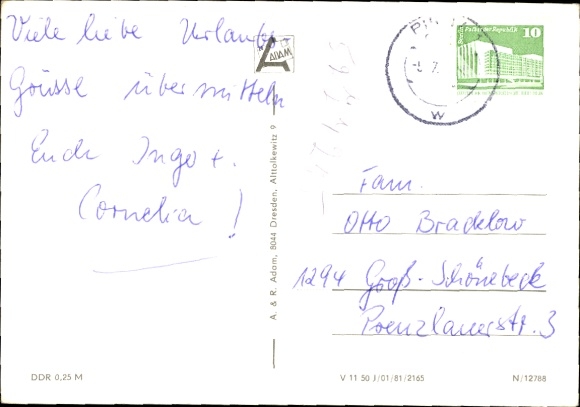 Viele liebe Urlaubs-
Grüsse übermitteln
Euch Ingo +.
Cornelia !
ADAM
A. & R. Adam, 8044 Dresden, Alttolkewitz 9
Palast der Republik
10
W
Fam.
Otto Bracklow
1294 Groß-Schönebeck
Prenzlauerstr. 3
DDR 0,25 M
V 11 50 J/01/81/2165
N/12788